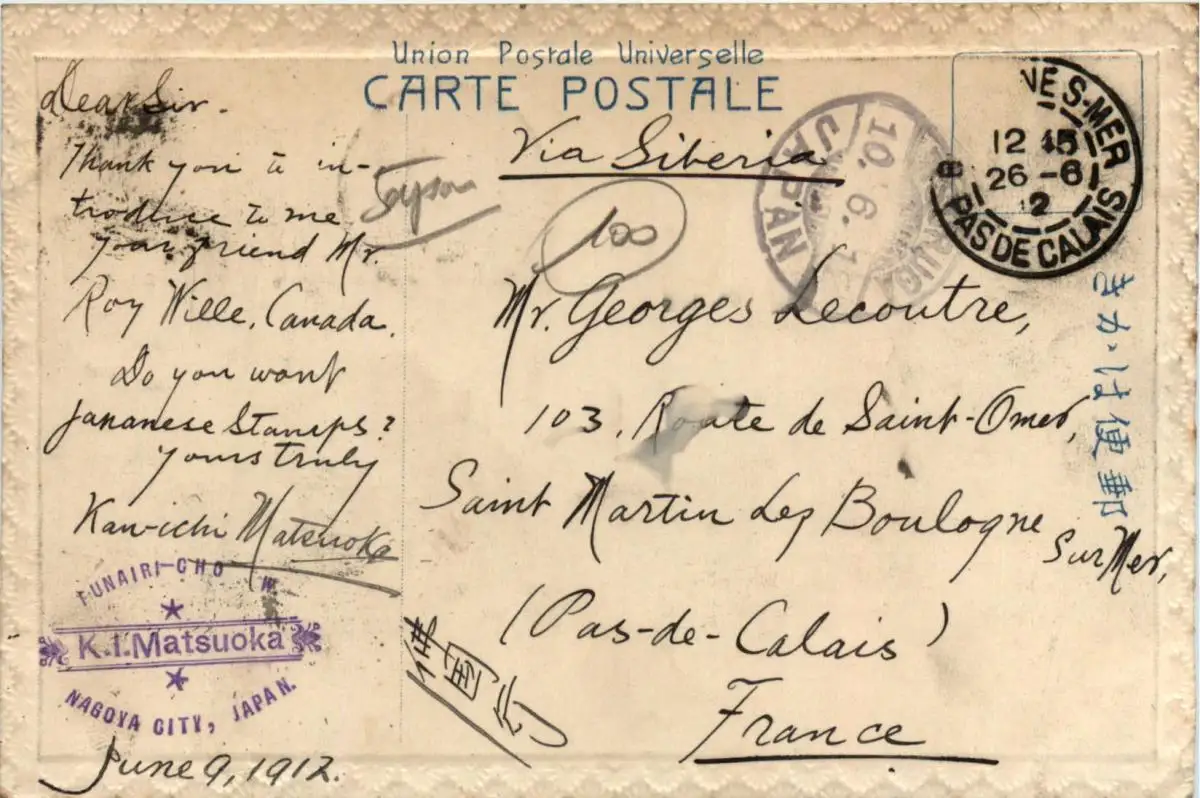 Union Postale Universelle
CARTE POSTALE
Via Siberia
Dear Sir.
Thank you to in-
troduce to me
your friend Mr.
Roy Wille, Canada.
Do you want
Japanese Stamps?
Yours truly
Kan-ichi Matsuoka
FUNAIRI-CHO
K.I.Matsuoka
NAGOYA CITY, JAPAN.
June 9, 1912.
100
JAPAN
10.6.1
NE S-MER
12 15
26 -6
12
PAS DE CALAIS
Mr. Georges Lecoutre,
103, Route de Saint-Omer,
Saint Martin Les Boulogne
Sur Mer,
(Pas-de-Calais)
France
きかは便郵